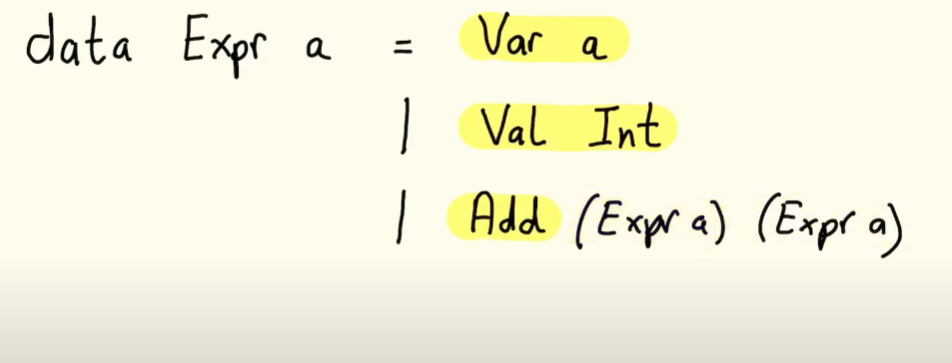 data Expr a = Var a
| Val Int
| Add (Expr a) (Expr a)